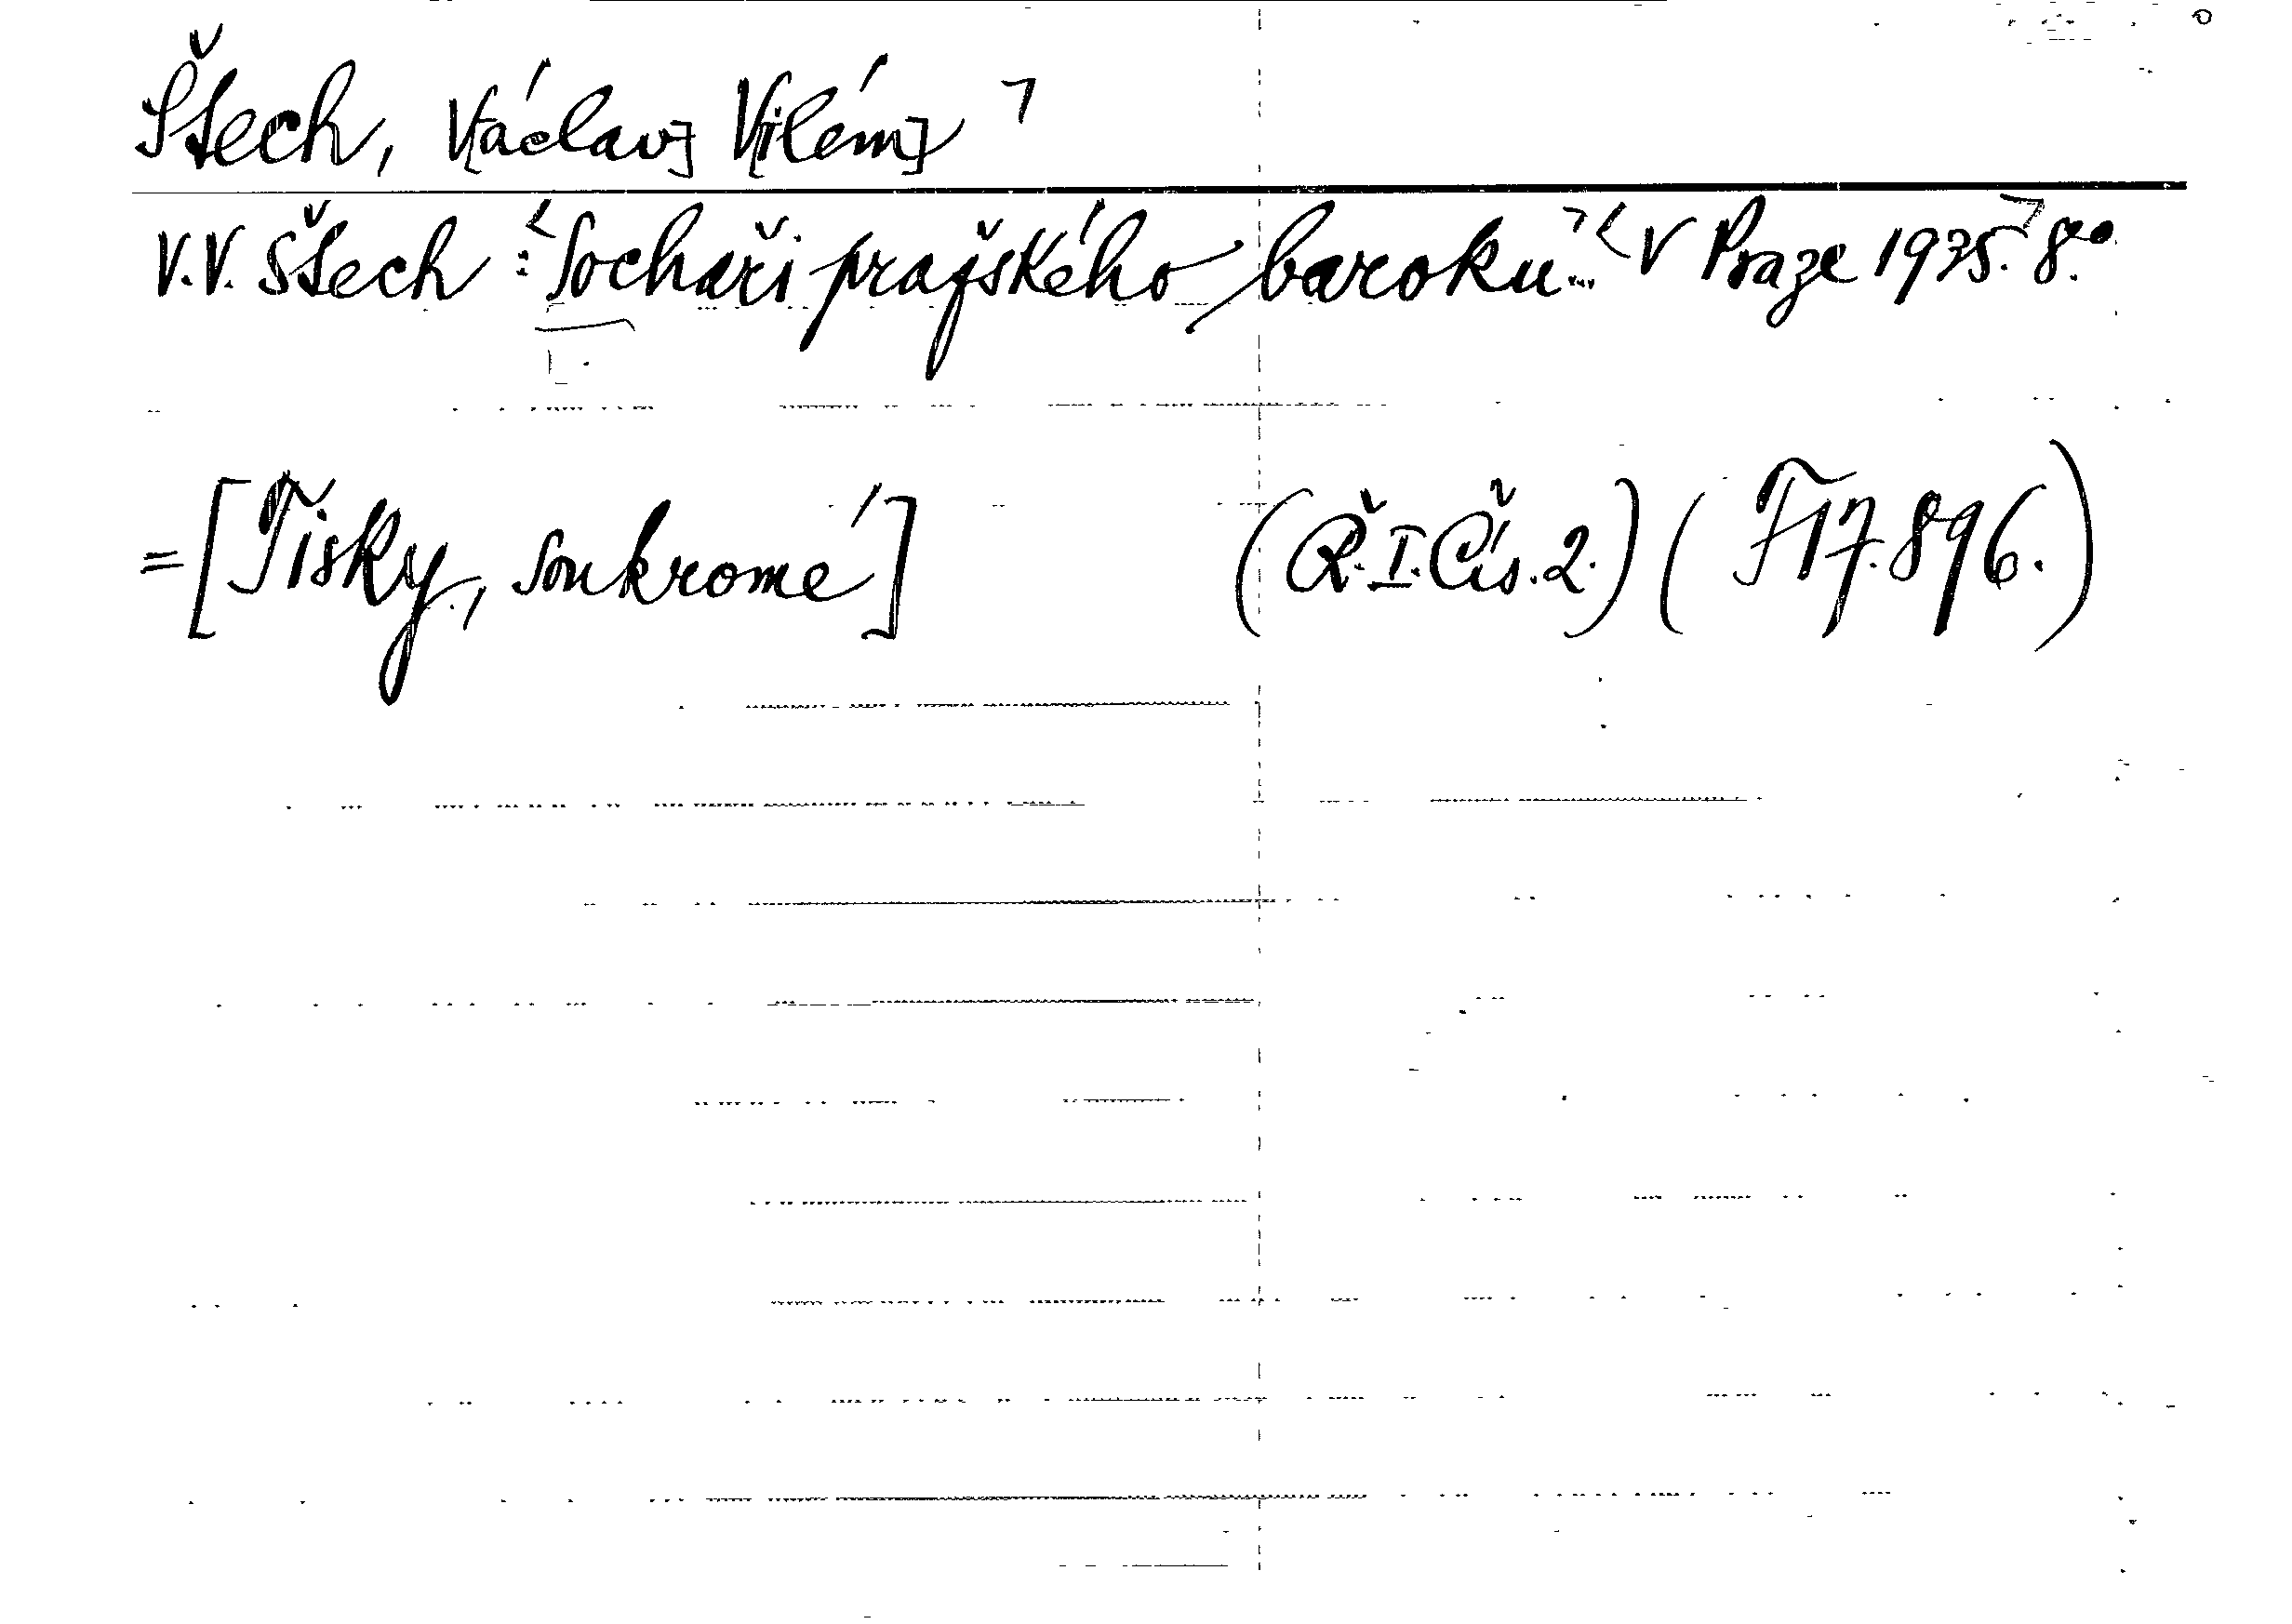 Štech, V[áclav] V[ilém]
V.V. Štech: Sochaři pražského baroku... V Praze 1935. 8.°
= [Tisky, soukromé] (Ř.I.Čís.2.) (F 17.896.)